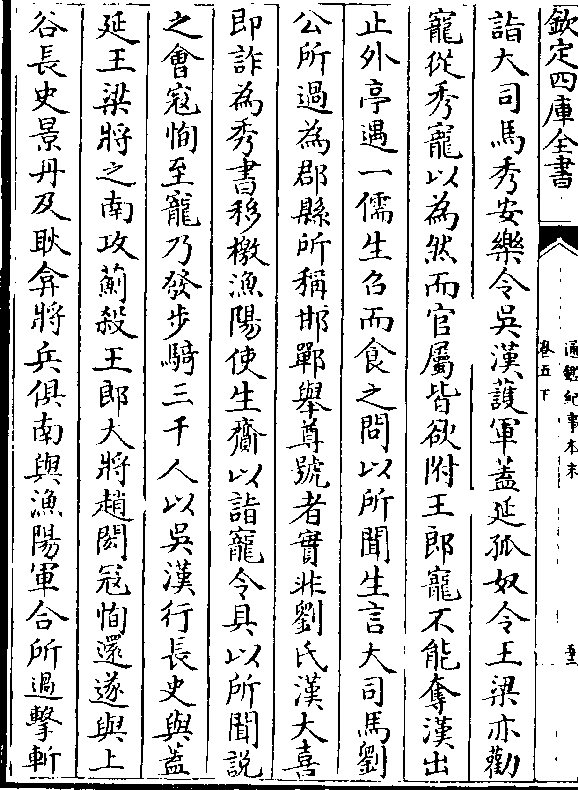 欽定四庫全書
通鑑紀事本末
卷五下
詣大司馬秀安樂令吳漢護軍蓋延狐奴令王梁亦勸
寵從秀寵以為然而官屬皆欲附王郎寵不能奪漢出
止外亭遇一儒生召而食之問以所聞生言大司馬劉
公所過為郡縣所稱邯鄲舉尊號者實非劉氏漢大喜
即詐為秀書移檄漁陽使生齎以詣寵令具以所聞說
之會寇恂至寵乃發步騎三千人以吳漢行長史與蓋
延王梁將之南攻薊殺王郎大將趙閎寇恂還遂與上
谷長史景丹及耿弇將兵俱南與漁陽軍合所過擊斬